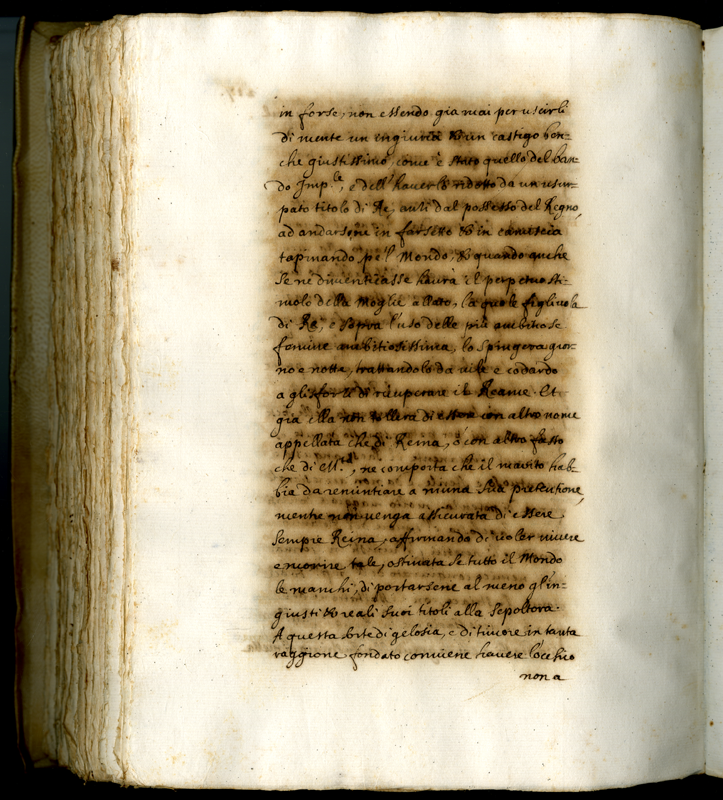 in forse, non essendo gia mai per uscirli
di mente un ingiuria & un castigo ben-
che giustissimo, come è stato quello del ban-
do Imp.le, e dell'haverlo ridotto da un usur-
pato titolo di Re, anzi dal possesso del Regno,
ad andarsene in farsetto & in camiscia
tapinando pe'l Mondo, & quando anche
se ne dimenticasse haurà il perpetuo sti-
molo della Moglie allato, la quale figlivola
di Re, e sopra l'uso delle più ambitiose
femine ambitiosissima, lo spingera gior-
no e notte, trattandolo da vile e codardo
a gli sforzi di ricuperare il Reame. Et
già ella non tollera di essere con altro nome
appellata che di Reina, ò con altro fasto
che di M.tà, ne comporta che il marito hab-
bia da renuntiare a niuna sua pretentione,
mentre non venga assicurata di essere
sempre Reina, affirmando di voler vivere
e morire tale, ostinata se tutto il Mondo
le manchi, di portarsene al meno gl'in-
giusti & reali suoi titoli alla sepoltora.
A questa sorte di gelosia, e di timore in tanta
raggione fondato conviene havere l'occhio
non a